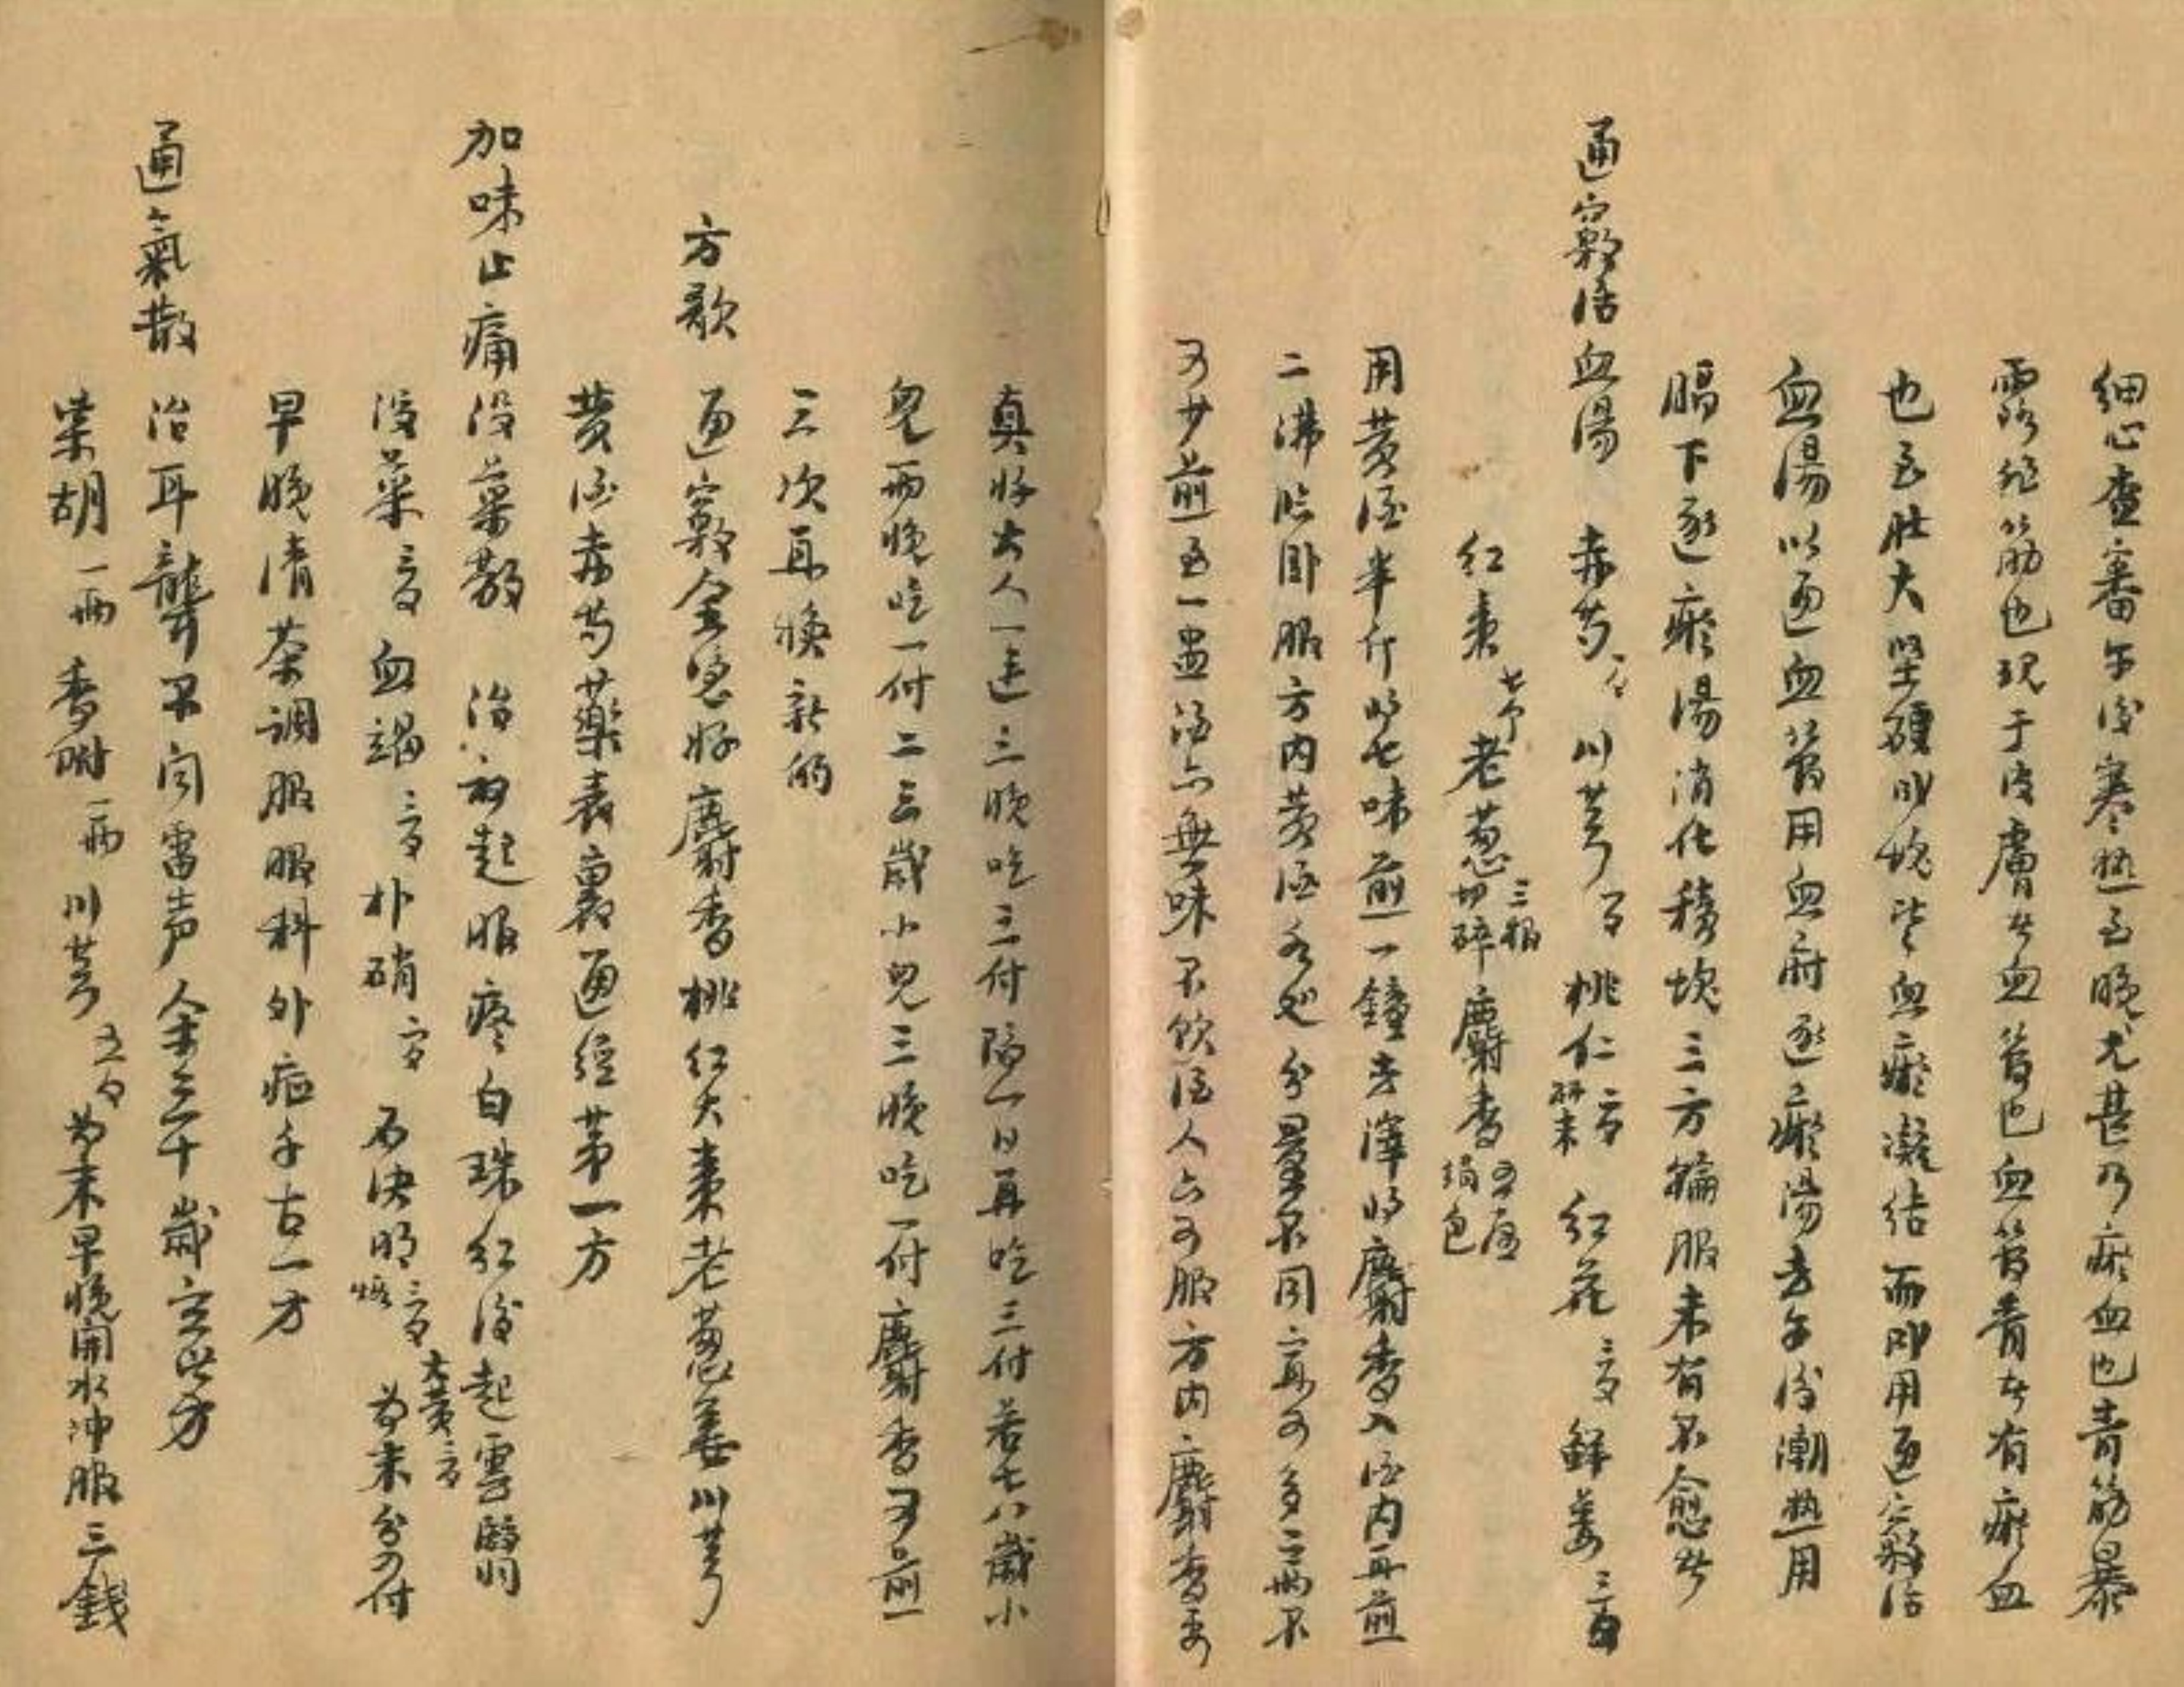 細心查審午後寒热至晚尤甚乃瘀血也青筋暴
露非筋也现于皮膚者血管也血管青者有瘀血
也至肚大坚硬成塊皆血瘀凝结而成用通竅活
血湯以通血管用血府逐瘀湯去午後潮热用
膈下逐瘀湯消化積塊三方輪服未有不愈者
通竅活血湯 赤芍一錢 川芎一錢 桃仁二錢研末 紅花三錢 鲜姜三錢
红棗七个 老葱三根切碎 麝香五厘绢包
用黄酒半斤將七味煎一鐘去渣將麝香入酒内再煎
二沸临卧服方内黄酒各处分量不同宁可多二两不
可少煎至一盅酒亦無味不飲酒人亦可服方内麝香要
真好大人一连三晚吃三付隔一日再吃三付若七八歲小
兒两晚吃一付二三歲小兒三晚吃一付麝香可煎
三次再换新的
方歌 通竅全凭好麝香桃红大棗老葱姜川芎
黄酒赤芍藥表裏通经第一方
加味止痛没药散 治初起眼疼白珠红後起雲翳
没药三錢 血竭三錢 大黄二錢 朴硝二錢 石决明三錢煅 為末分四付
早晚清茶调服眼科外症千古一方
通氣散 治耳聾不闻雷声余三十歲立此方
柴胡一两 香附一两 川芎五錢 為末早晚開水冲服三錢